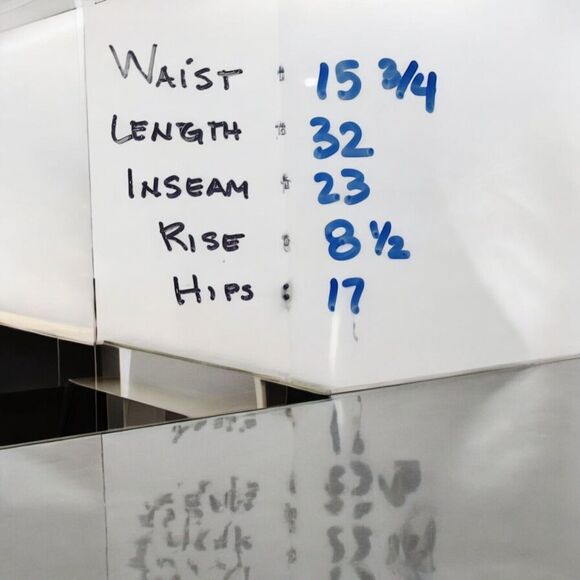 WAIST : 15 3/4
LENGTH : 32
INSEAM : 23
RISE : 8 1/2
HIPS : 17